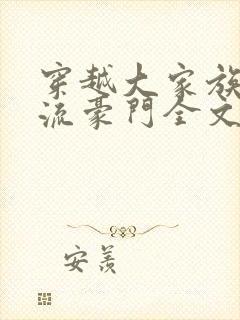 穿越大家族
流豪門全文
安羨